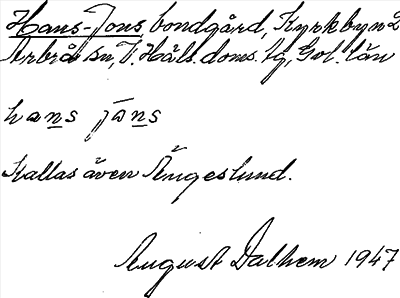 Hans-Jons bondgård, Kyrkbyn 2
Arbrå sn, V. Häls. doms. tg, Gvl. län
hans jāns
Kallas även Ängeslund.
August Dalhem 1947